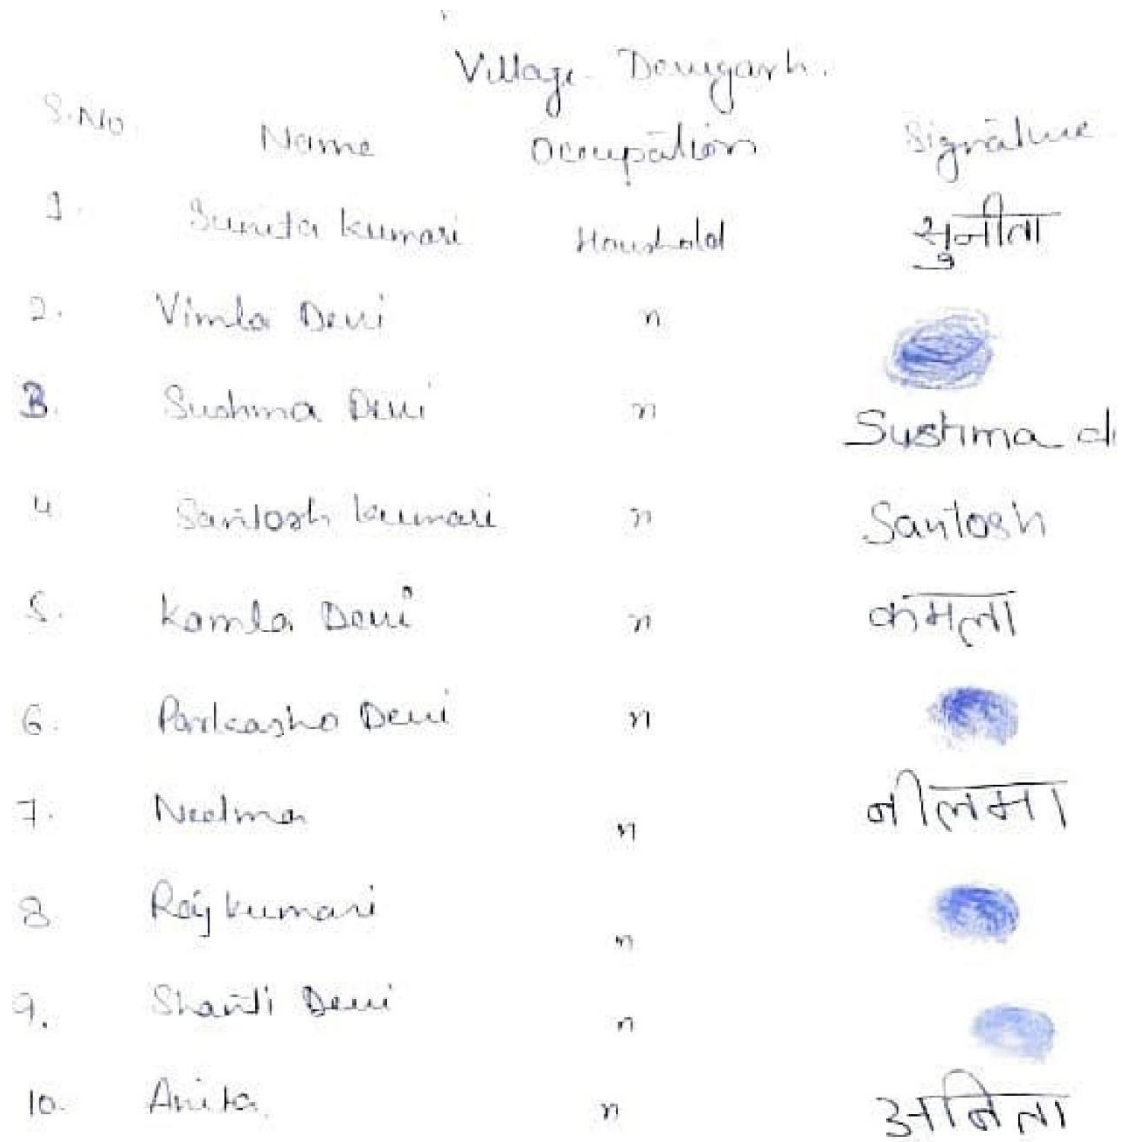 Village. Devigarh.
S.No. Name Occupation Signature
1. Sunita Kumari Houshold सुनीता
2. Vimla Devi "
3. Sushma Devi " Sushma d
4 Santosh Kumari " Santosh
5. Kamla Devi " कमला
6. Parkasho Devi "
7. Neelma " नीलमा
8 Raj Kumari "
9. Shanti Devi "
10. Anita. " अनिता